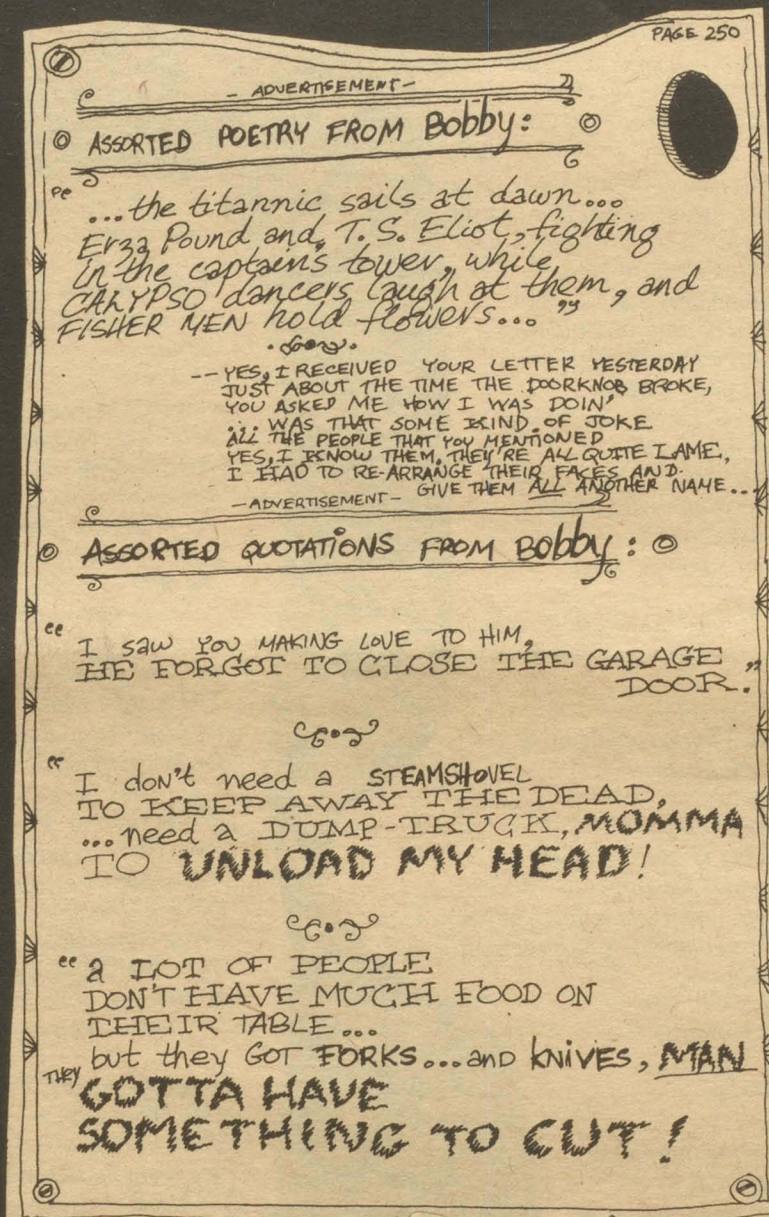 PAGE 250
- ADVERTISEMENT -
ASSORTED POETRY FROM Bobby:
"...the titannic sails at dawn...
Erza Pound and, T. S. Eliot, fighting
in the captain's tower, while
CALYPSO dancers laugh at them, and
FISHER MEN hold flowers..."
-- YES, I RECEIVED YOUR LETTER YESTERDAY
JUST ABOUT THE TIME THE DOORKNOB BROKE,
YOU ASKED ME HOW I WAS DOIN'
... WAS THAT SOME KIND OF JOKE
ALL THE PEOPLE THAT YOU MENTIONED
YES, I KNOW THEM, THEY'RE ALL QUITE LAME,
I HAD TO RE-ARRANGE THEIR FACES AND
GIVE THEM ALL ANOTHER NAME...
- ADVERTISEMENT -
ASSORTED QUOTATIONS FROM Bobby:
"I saw YOU MAKING LOVE TO HIM,
HE FORGOT TO CLOSE THE GARAGE
DOOR."
"I don't need a STEAMSHOVEL
TO KEEP AWAY THE DEAD,
...need a DUMP-TRUCK, MOMMA
TO UNLOAD MY HEAD!
"a LOT OF PEOPLE
DON'T HAVE MUCH FOOD ON
THEIR TABLE...
but they GOT FORKS...and KNIVES, MAN
THEY GOTTA HAVE
SOMETHING TO CUT!